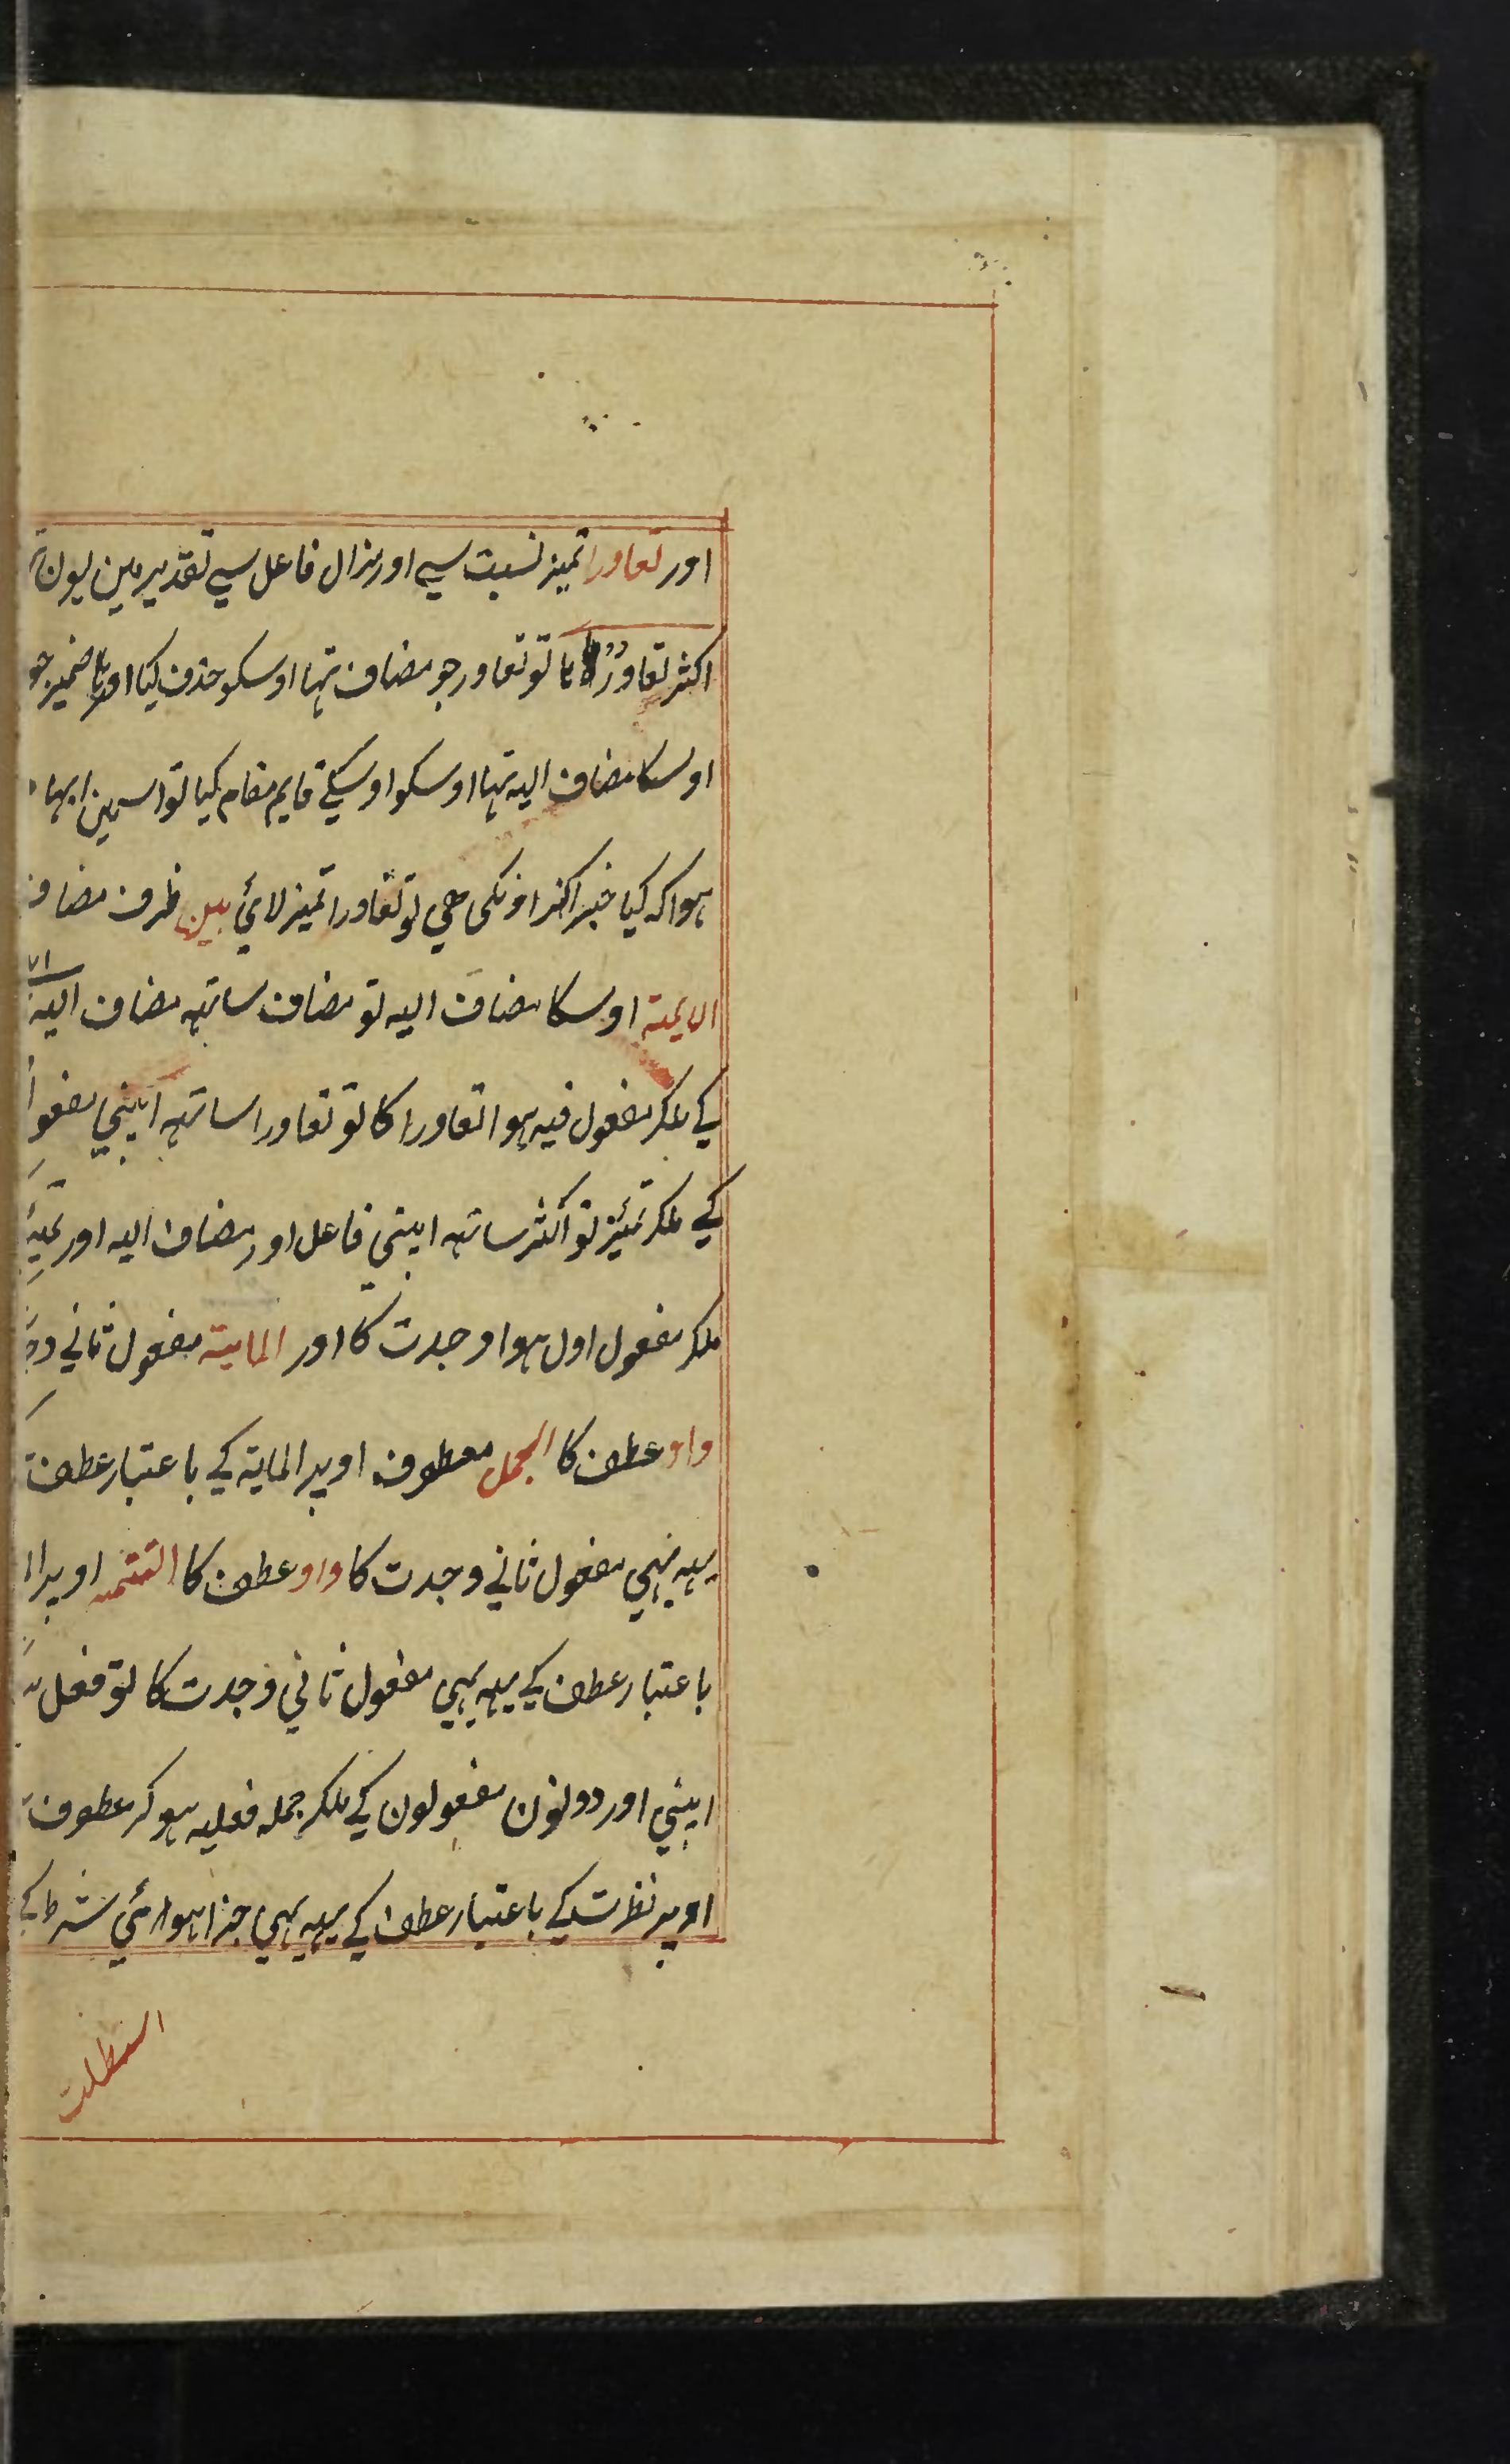 اور تعاورا تمیز نسبت سے اور مزال فاعل سے تقدیر مین یون
اکثر تعاورُ ہا تو تعاور جو مضاف تہا اوسکو حذف کیا اور ہا ضمیر جو
اوسکا مضاف الیہ تہا اوسکو اوسکے قایم مقام کیا تو اسمین ابہا
ہوا کہ کیا خبر اکثر اونکی ہی تو تعاورا تمیز لائی بین ظرف مضاف
الایمۃ اوسکا مضاف الیہ تو مضاف ساتہہ مضاف الیہ
کے ملکر مفعول فیہ ہوا تعاورا کا تو تعاورا ساتہہ اپنی مفعو
کے ملکر تمیز تو اکثر ساتہہ اپنی فاعل اور مضاف الیہ اور
ملکر مفعول اول ہوا وجدت کا اور المایۃ مفعول ثانی
واو عطف کا الجمل معطوف اوپر المایۃ کے باعتبار عطف
یہہ بہی مفعول ثانی وجدت کا واو عطف کا التتمہ اوپر
باعتبار عطف کے یہہ بہی مفعول ثانی وجدت کا تو فعل
اپنی اور دونون مفعولون کے ملکر جملہ فعلیہ ہوکر عطوف
اوپر نظرت کے باعتبار عطف کے یہہ بہی جزا ہوا سی شرط کے